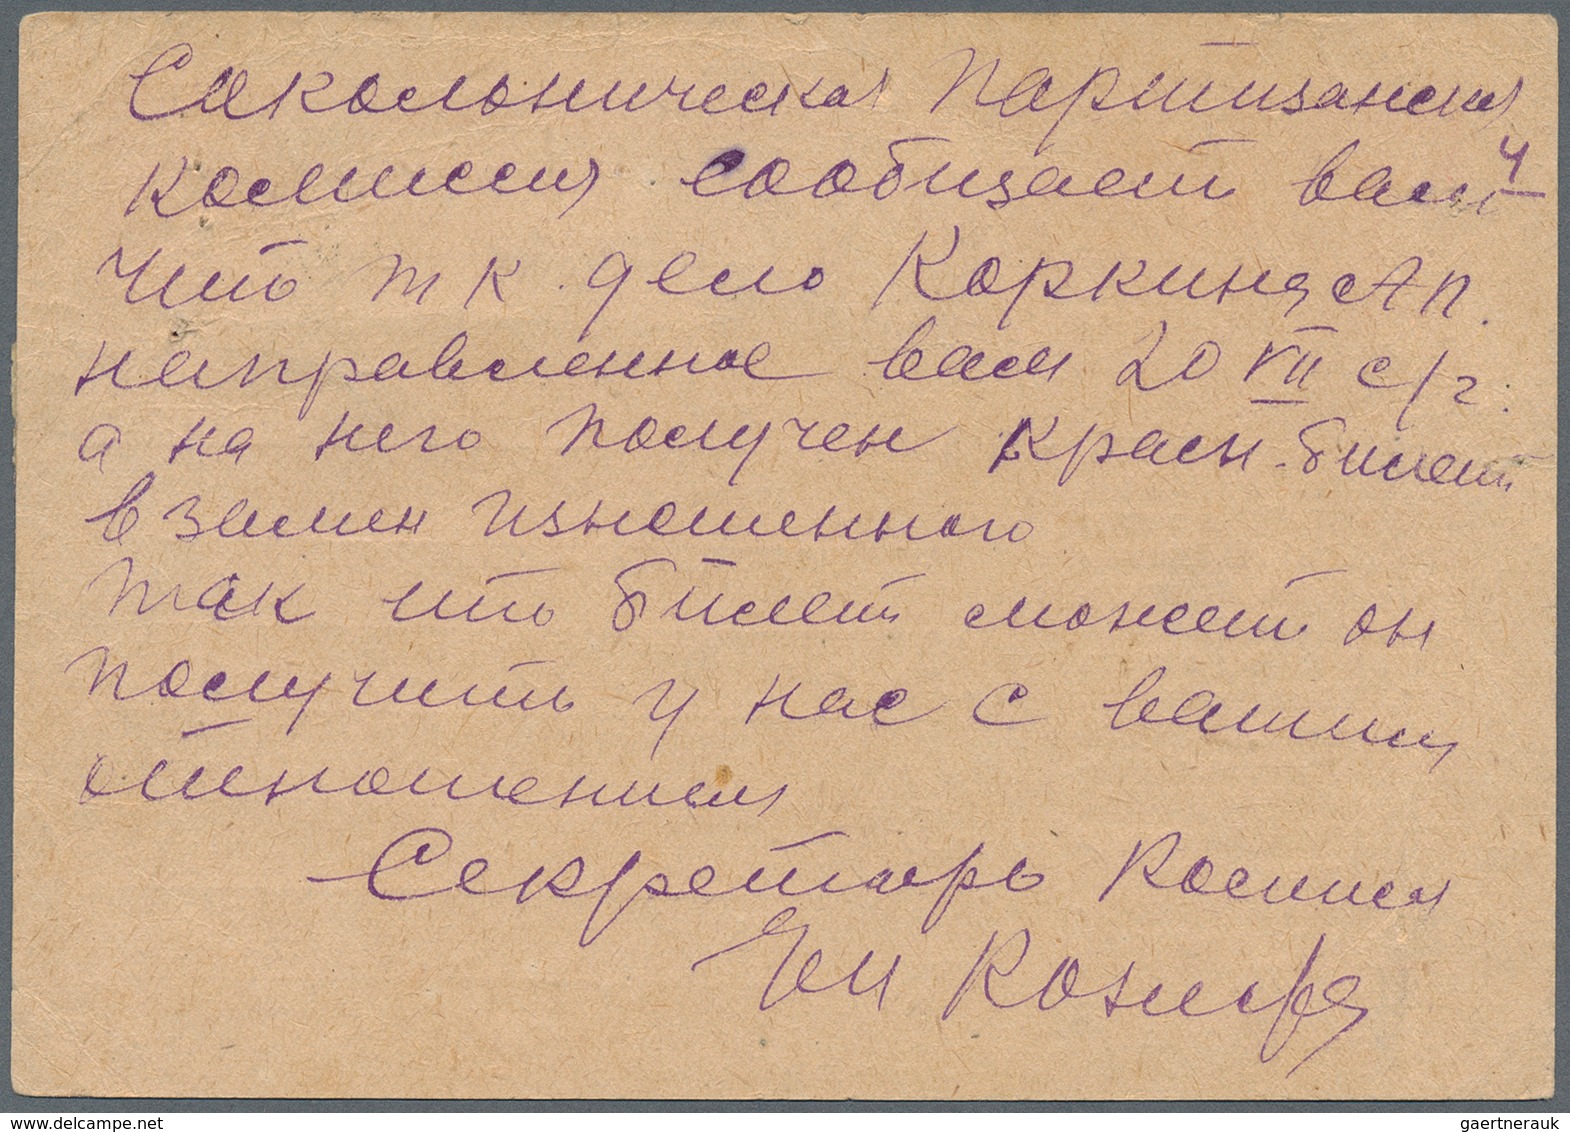 Сокольническая Партизанская
комиссия сообщает вам 4
что т к. дело Коркина А П.
направленное вам 20 VII с/г.
а на него получен Красн. билет
в замен изношенного
так что билет может он
получить у нас с вашим
отношением
Секретарь Комиссии
delcampe.net
gaertnerauk